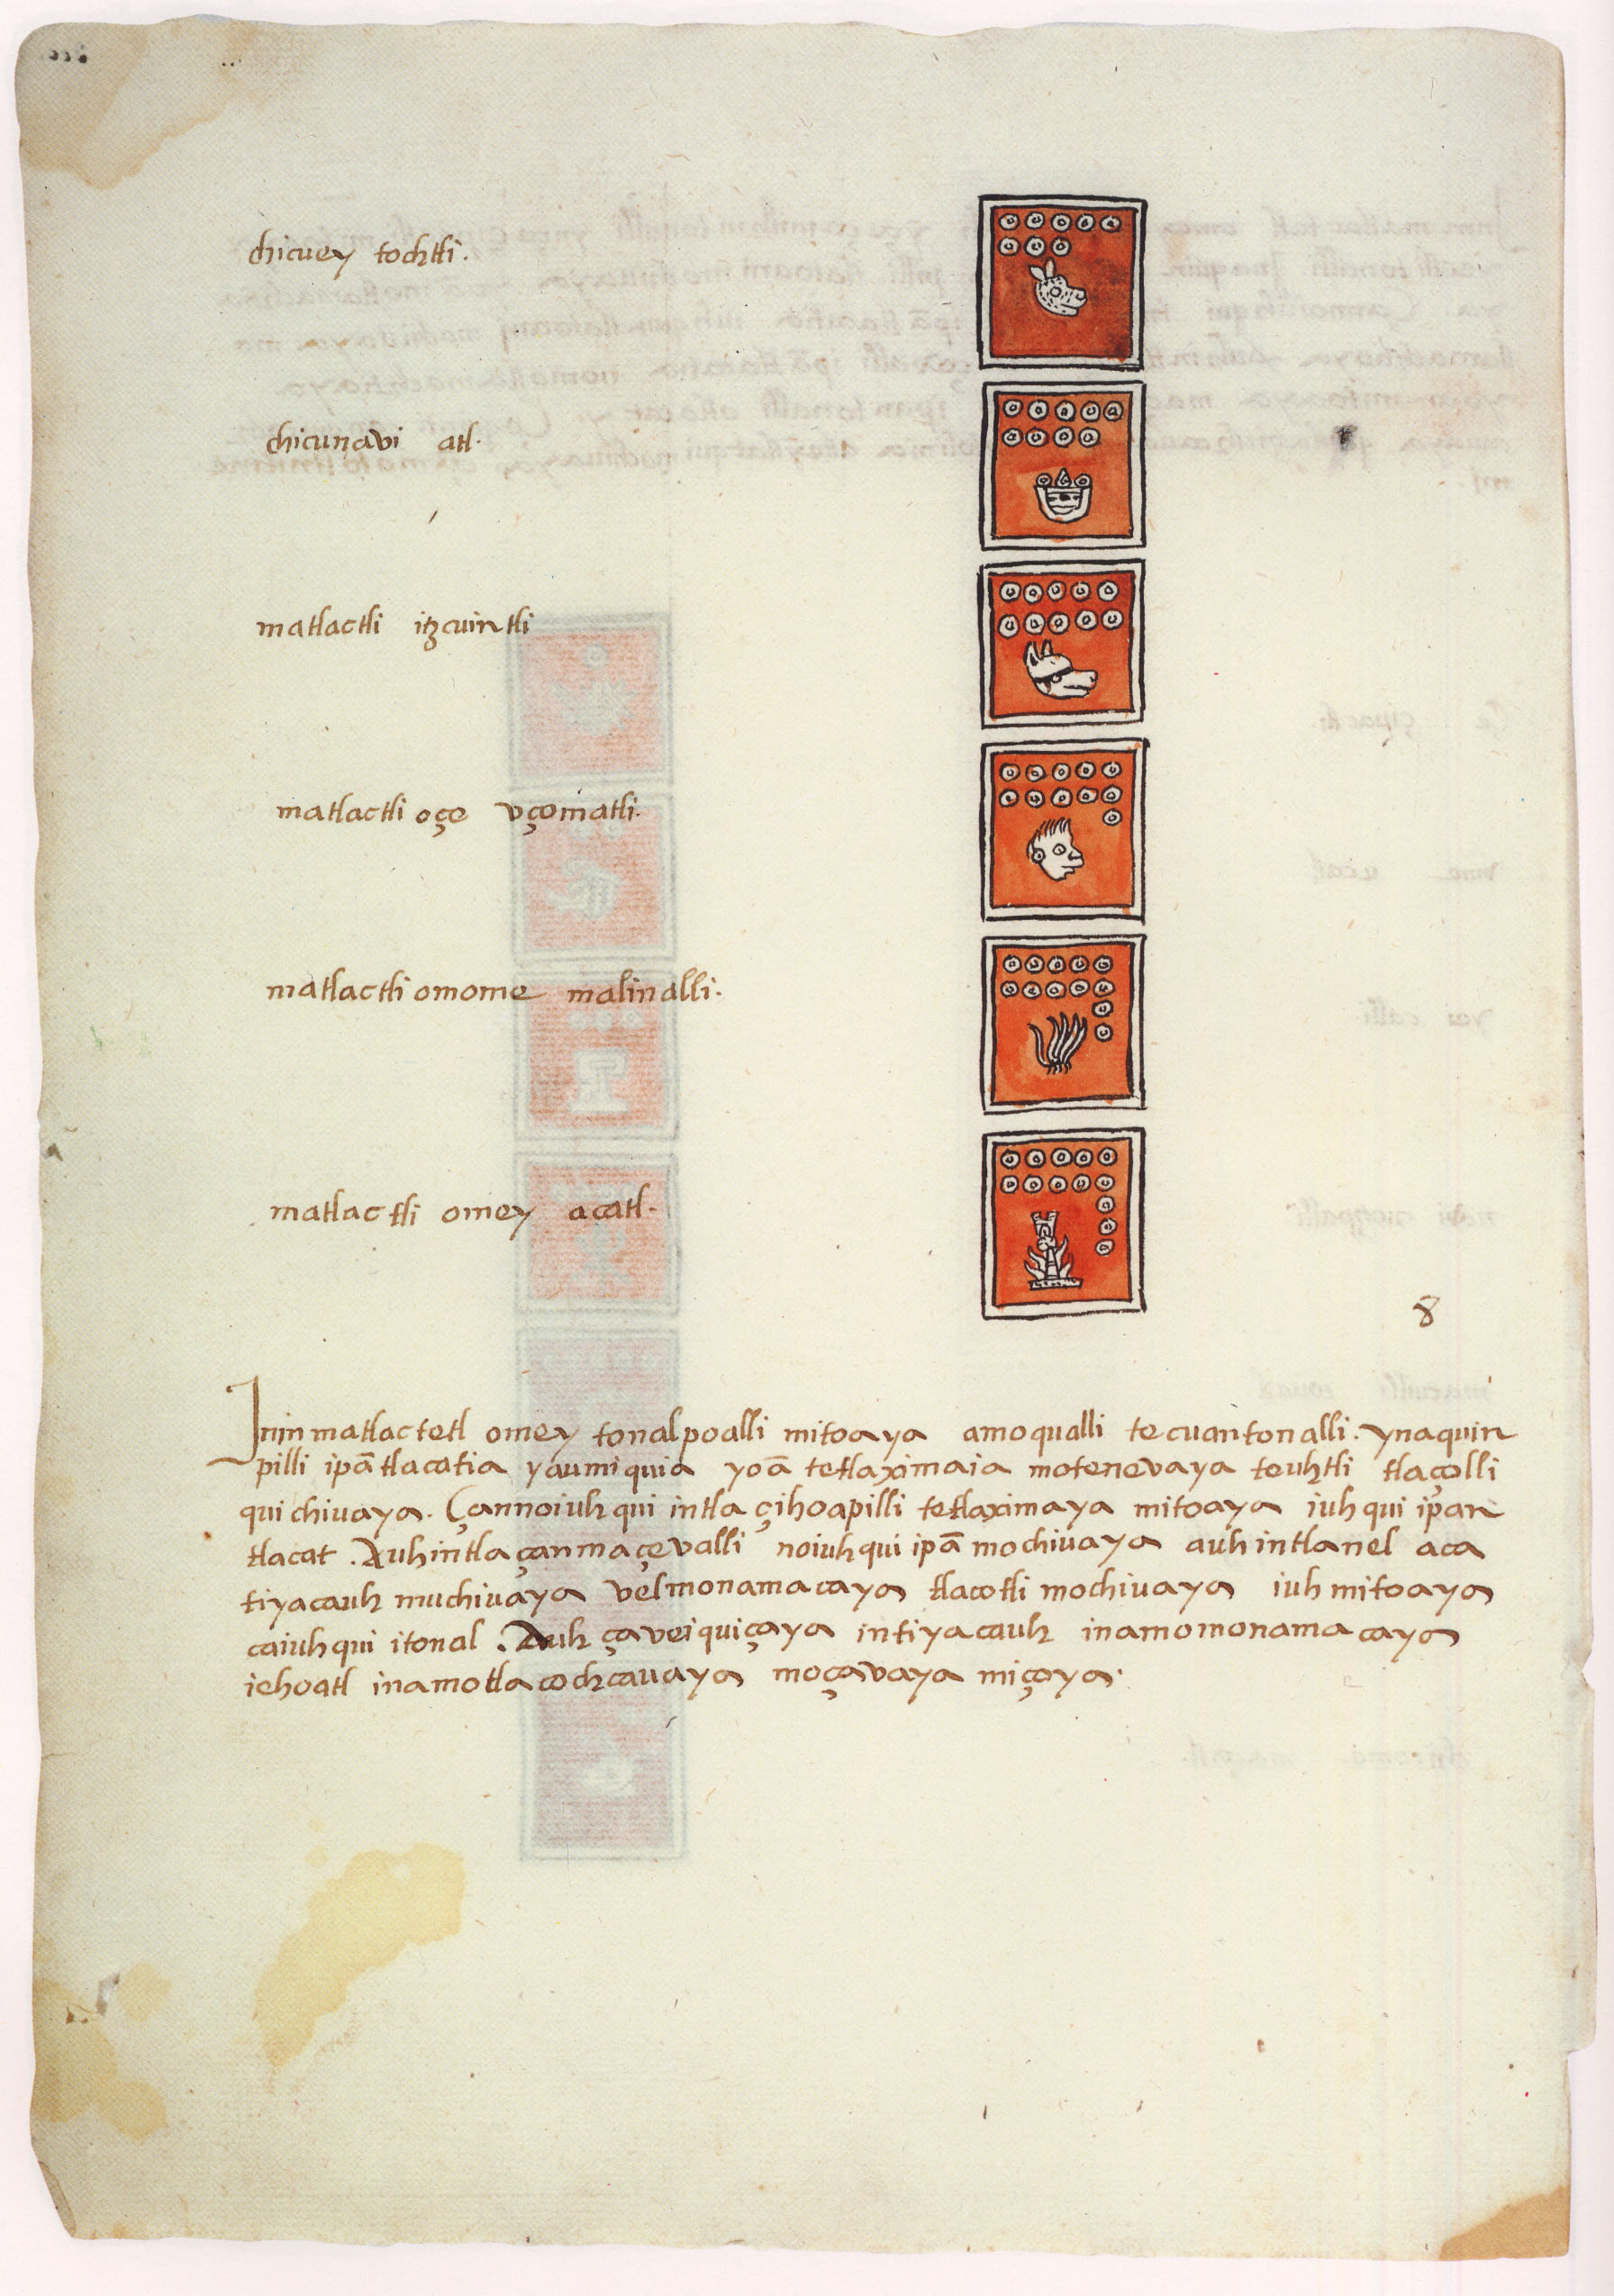 chicuey tochtli.
chicunavi atl.
matlactli itzcuintli
matlactli oçe vçomatli.
matlactli omome malinalli.
matlactli omey acatl.
8
Inin matlactetl omey tonalpoalli mitoaya amo qualli tecuantonalli. ynaquin
pilli ipā tlacatia yaumiquia yoā tetlaximaia motenevaya teuhtli tlaçolli
quichiuaya. Çannoiuhqui intla çihoapilli tetlaximaya mitoaya iuhqui ipan
tlacat. Auh intla çan maçevalli noiuhqui ipā mochiuaya auh intlanel aca
tiyacauh muchiuaya vel monamacaya tlacotli mochiuaya iuh mitoaya
caiuhqui itonal. Auh ça veiquiçaya in tiyacauh inamo monamacaya
iehoatl inamo tlacochcauaya moçavaya miçoya.